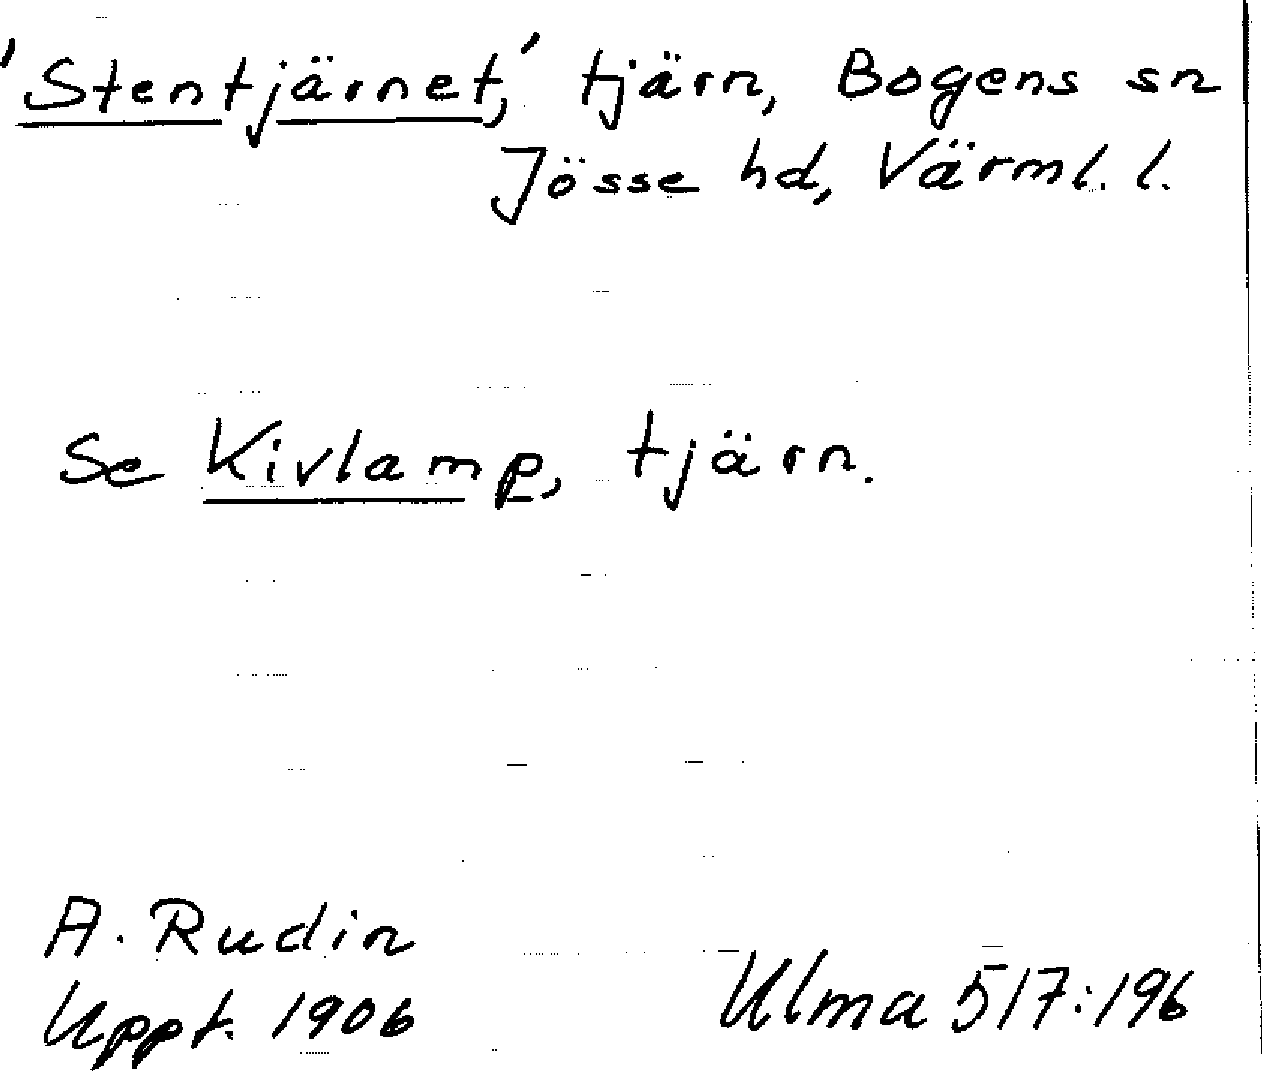 'Stentjärnet,' tjärn, Bogens sn
Jösse hd, Värml. l.
Se Kivlamp, tjärn.
A. Rudin
Uppt. 1906
Ulma 517:196